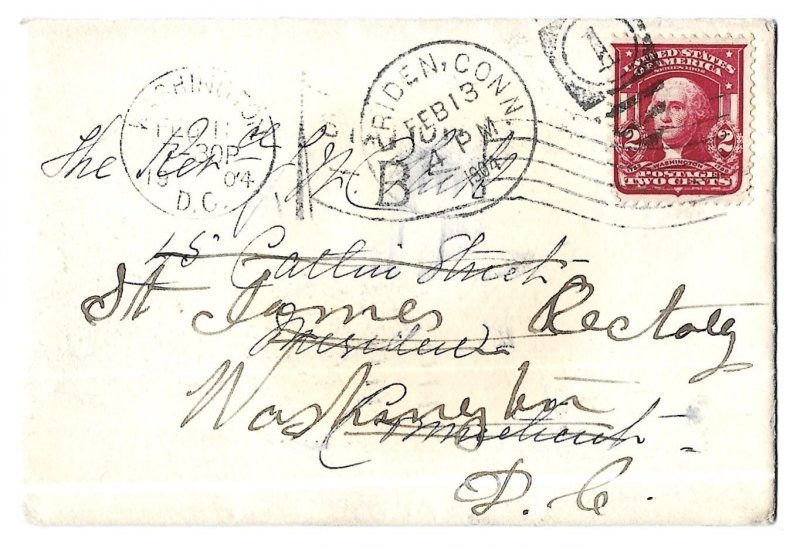 WASHINGTON
30P
19 04
D.C.
MERIDEN, CONN.
FEB 13
4 PM
1904
B
2
1
UNITED STATES
OF AMERICA
SERIES 1902
WASHINGTON
2 2
POSTAGE
TWO CENTS
The Rev.
15 Catlin Street
St. James Rectory
Meriden
Washington
Connecticut
D. C.